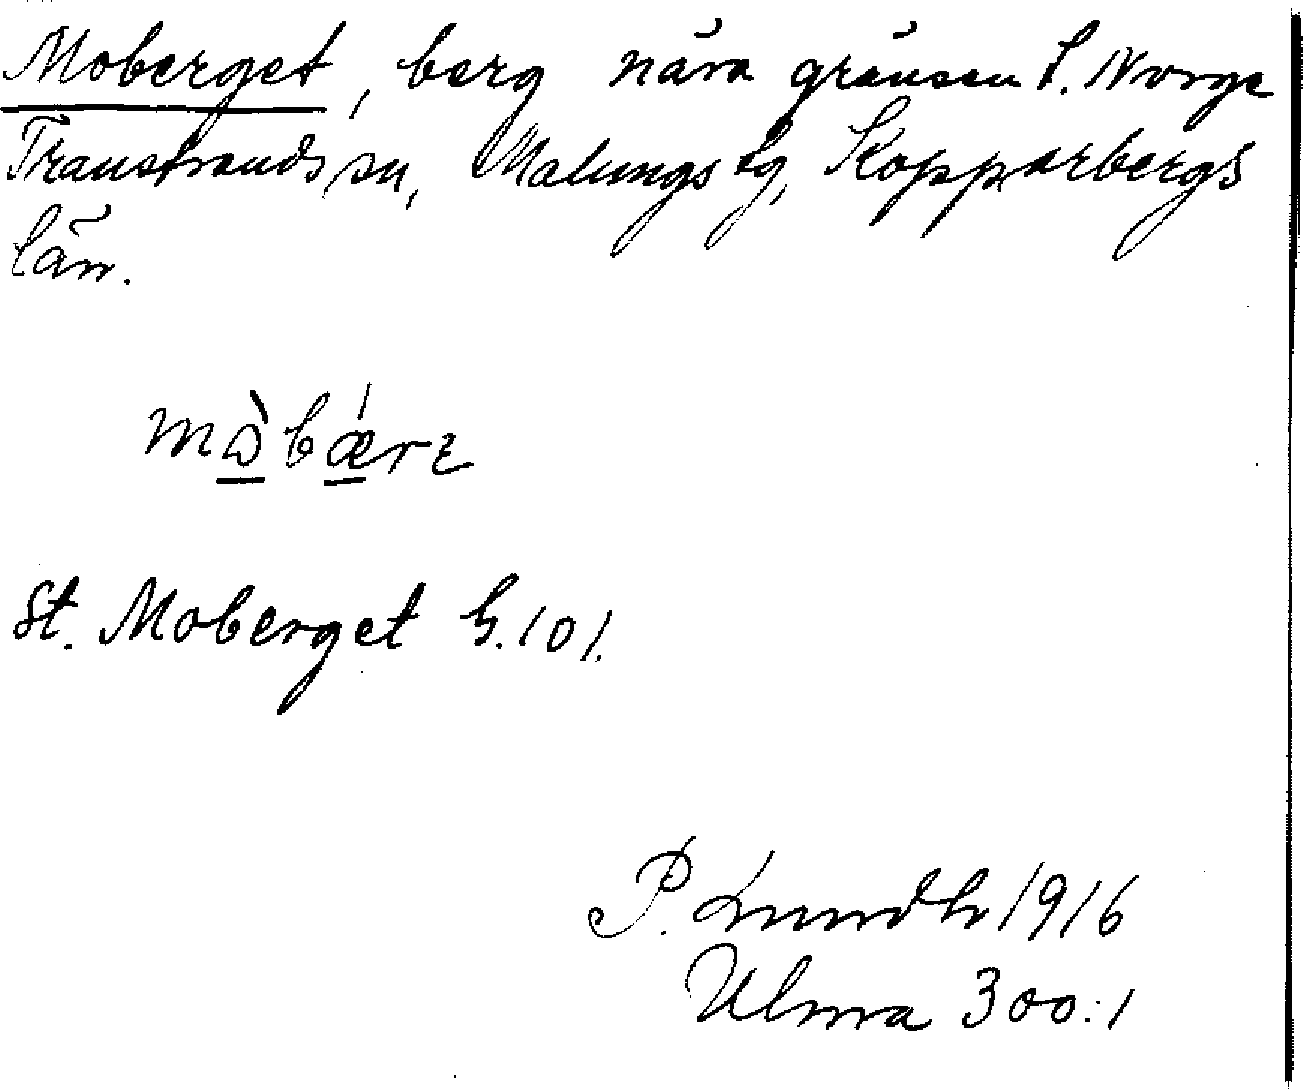 Moberget, berg nära gränsen t. Norge
Transtrands sn, Malungs tg, Kopparbergs
län.
mɷ̀bǽrɛ
St. Moberget G. 101.
P. Lundh 1916
Ulma 300:1